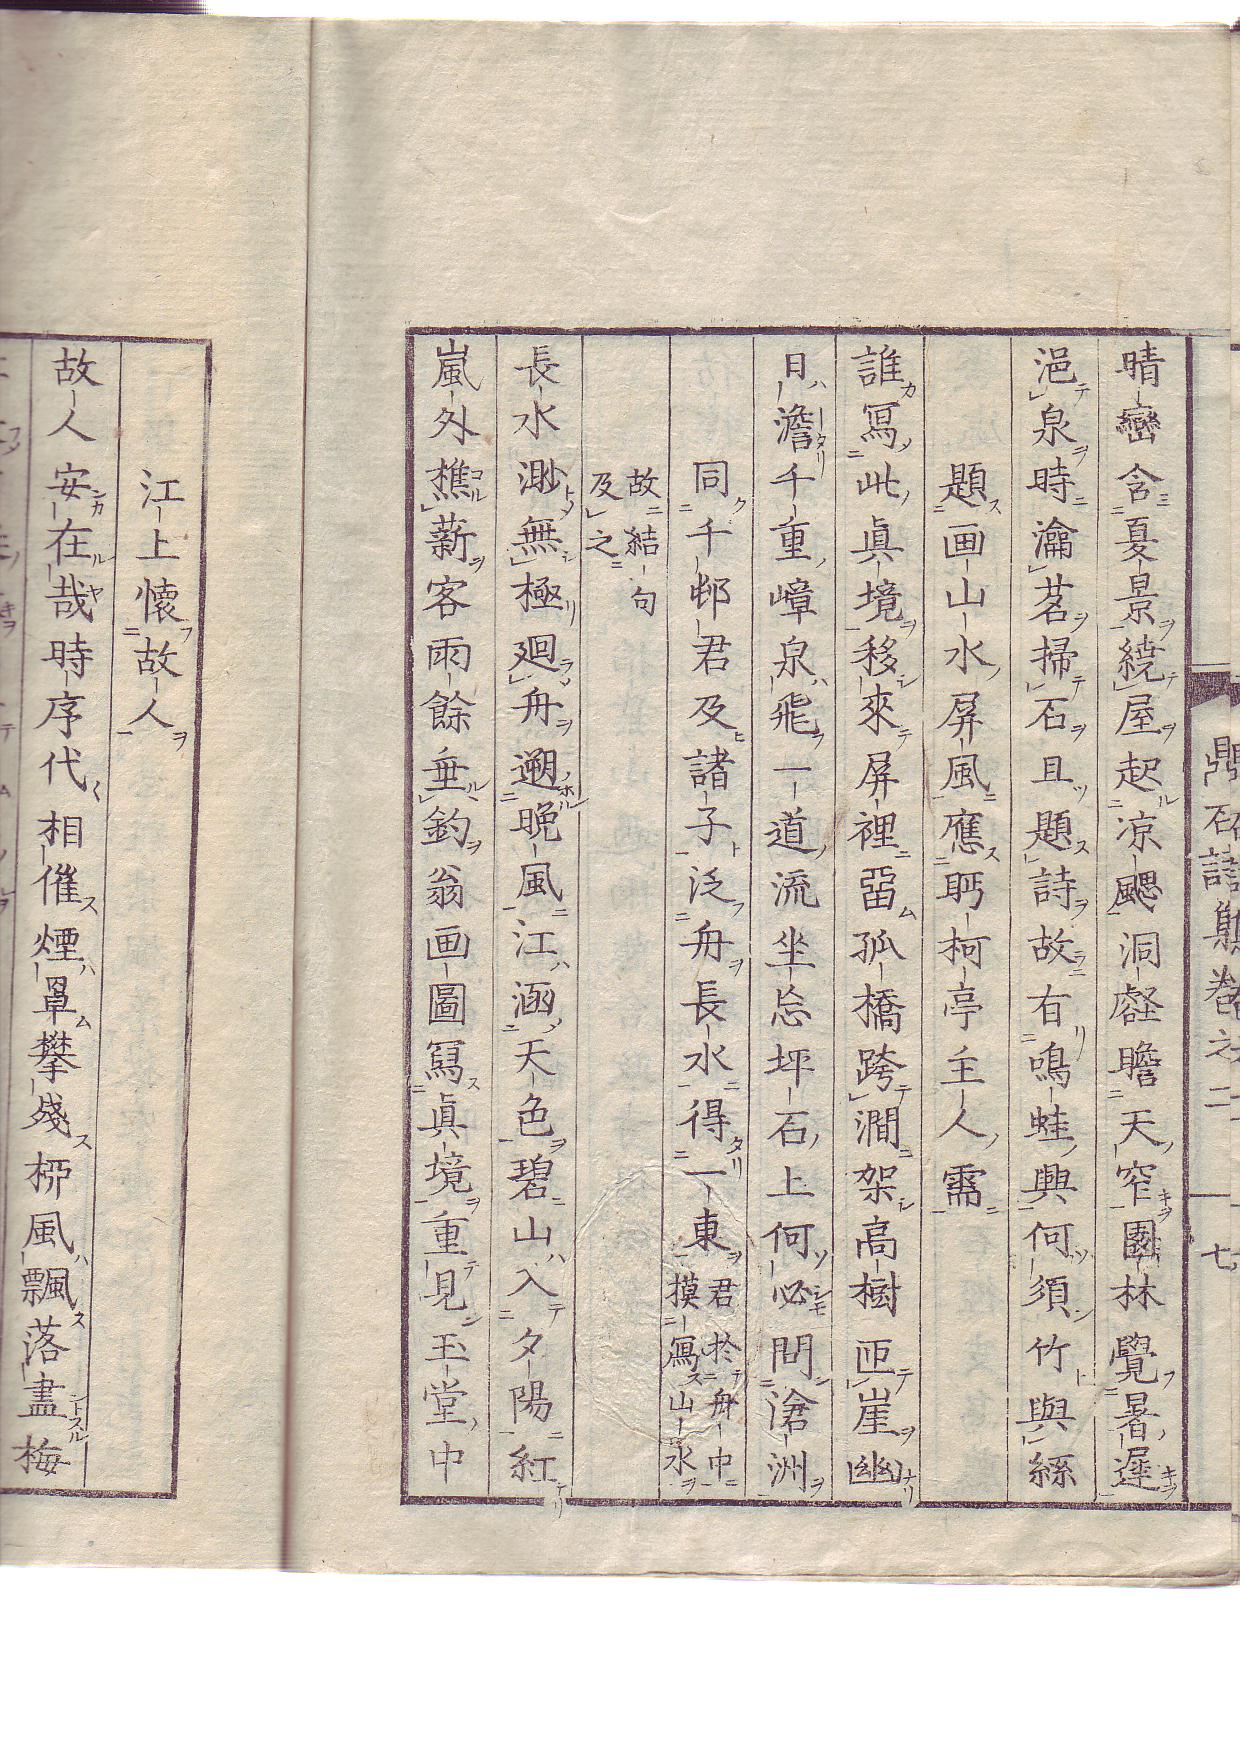 晴巒含夏景繞屋起凉颸洞壑瞻天窄園林覺暑遲
浥泉時瀹茗掃石且題詩故有鳴蛙興何須竹與絲
題画山水屏風應眄柯亭主人需
誰寫此眞境移來屏裡畱孤橋跨澗架高樹匝崖幽
日澹千重嶂泉飛一道流坐忘坪石上何必問滄洲
同千邨君及諸子泛舟長水得一東君於舟中摸寫山水
故結句及之
長水渺無極廻舟遡晩風江涵天色碧山入夕陽紅
嵐外樵薪客雨餘垂釣翁画圖寫眞境重見玉堂中
鼎石詩集卷之二
七
江上懷故人
故人安在哉時序代相催煙罩攀殘栁風飄落盡梅